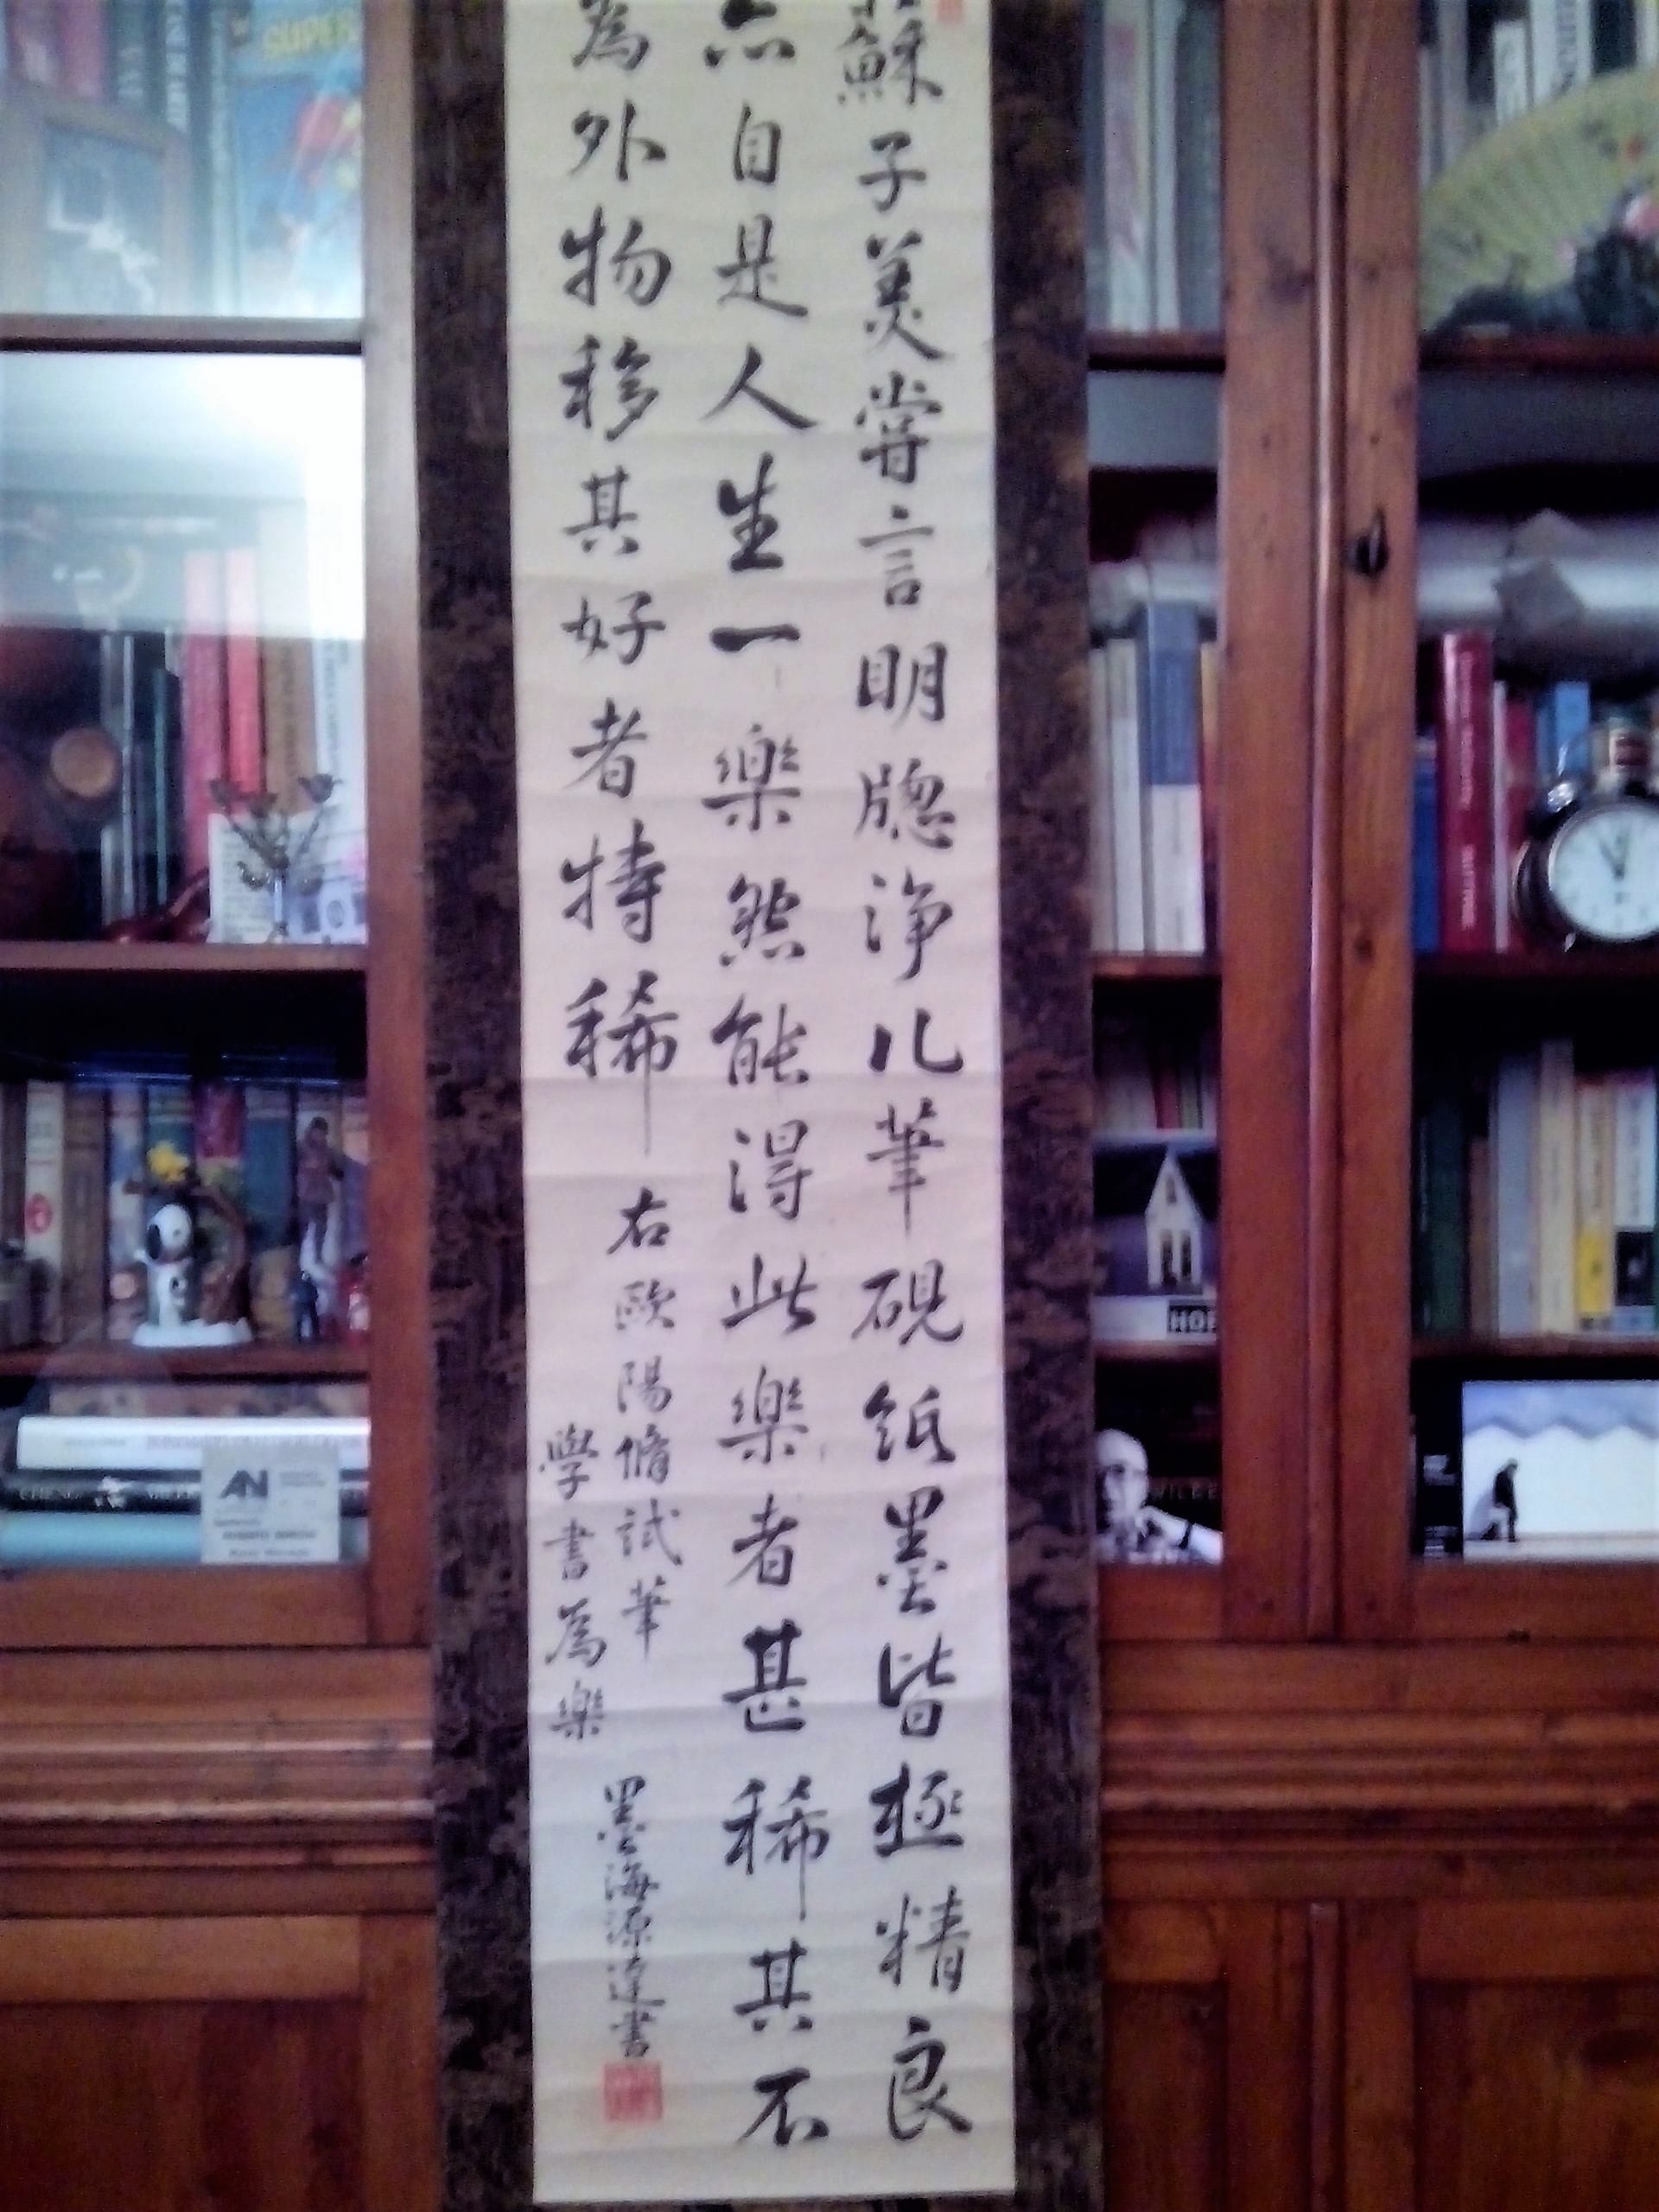 蘇子美嘗言明牕淨几筆硯紙墨皆極精良
亦自是人生一樂然能得此樂者甚稀其不
為外物移其好者特稀
右歐陽脩試筆
學書為樂
墨海源達書
SUPER
AN
HOP